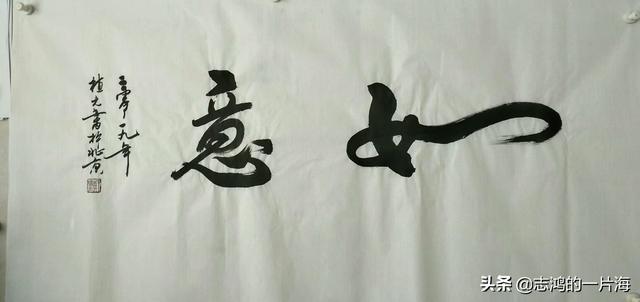 如意
二零一九年
植大书于北京
头条 @志鸿的一片海